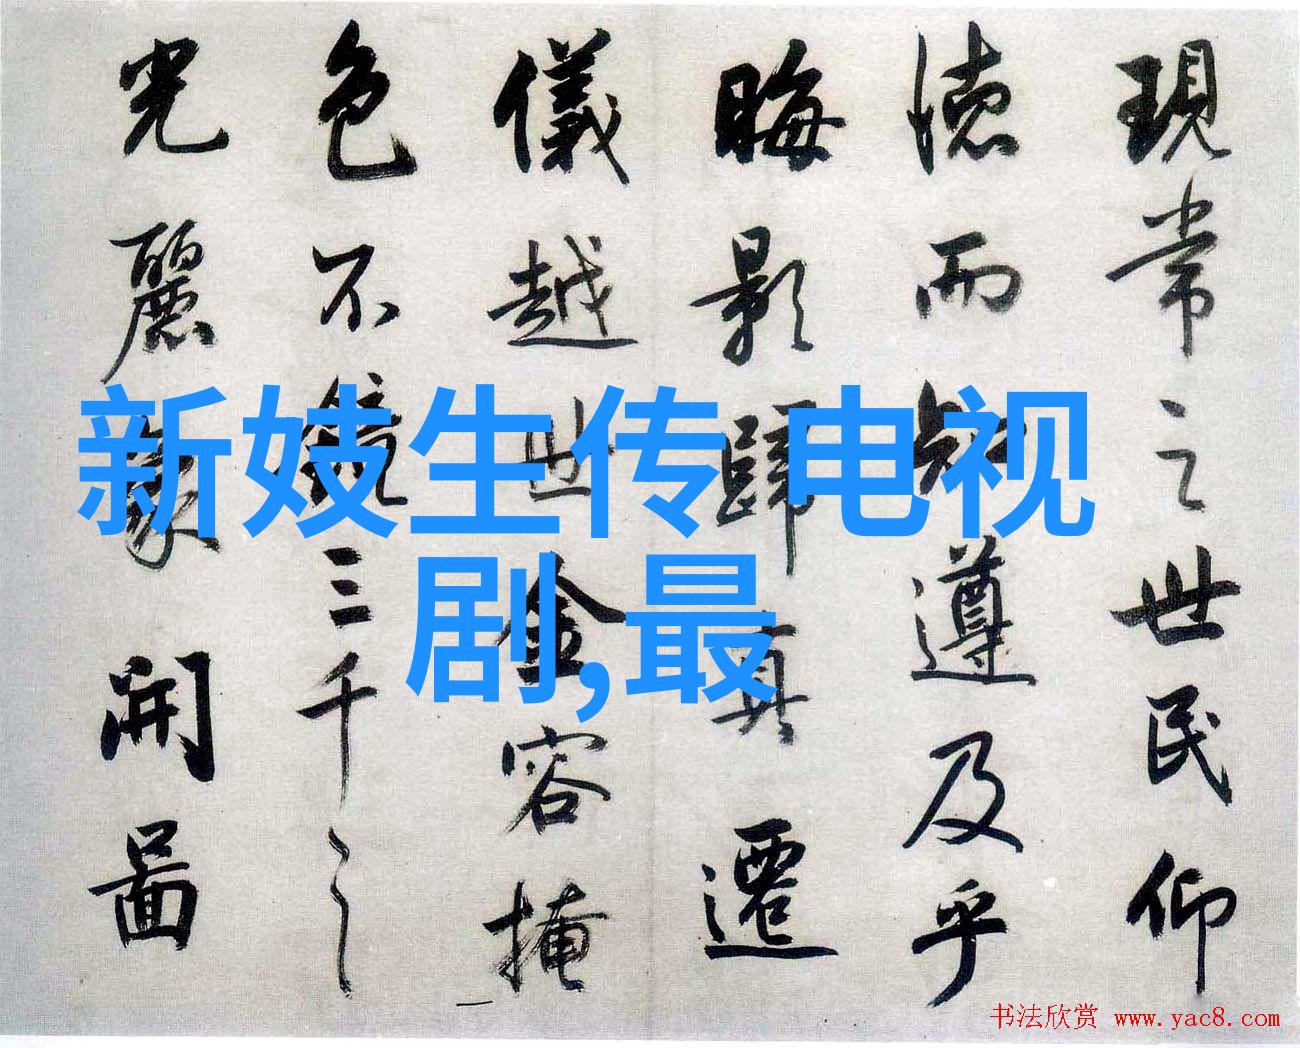 現常之世民仰
德而知遵及乎
晦影歸真遷
儀越世金容掩
色不鏡三千之
光麗象開圖
新妓生传 电视
剧,最
书法欣赏 www.yac8.com